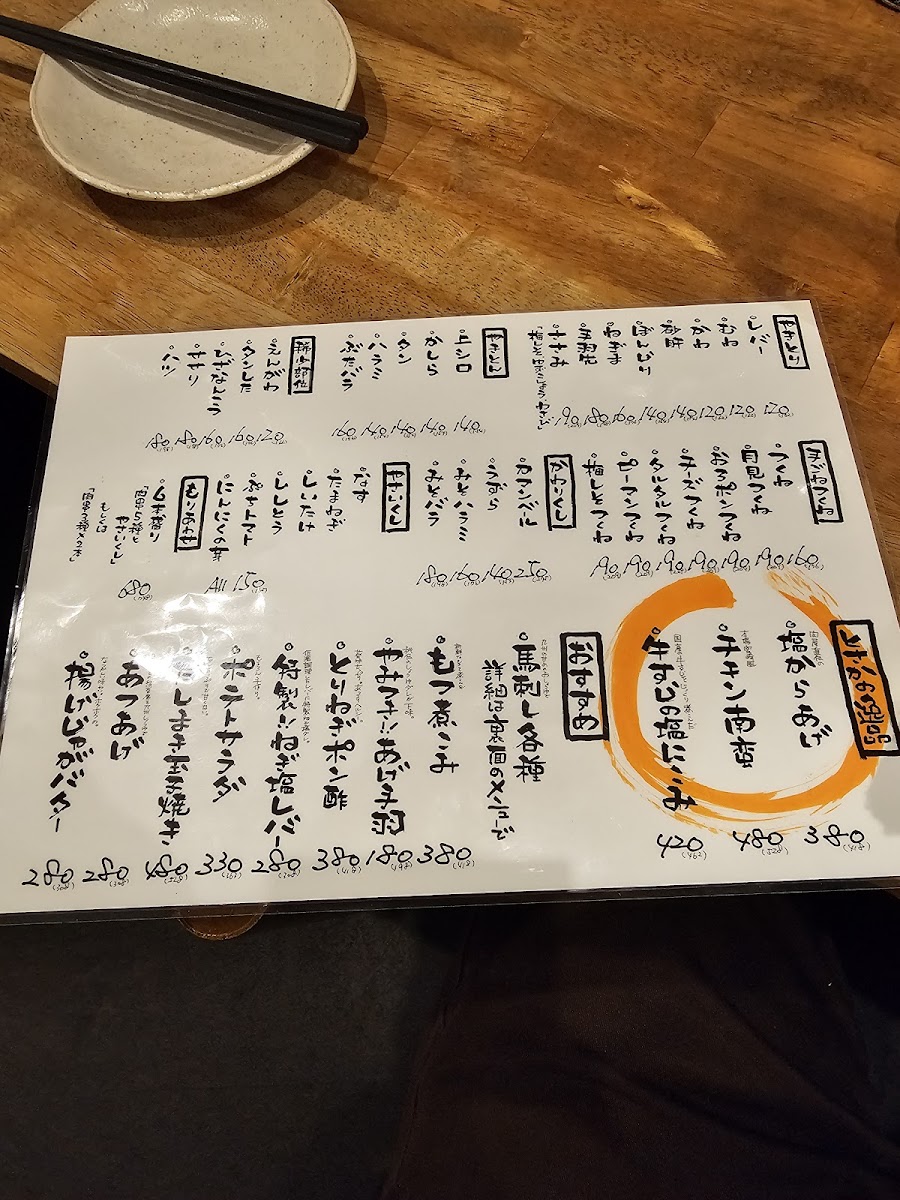 やきとり
レバー 120
むね 120
かわ 120
砂肝 140
ぼんじり 140
ねぎま 160
手羽先 180
ささみ 190
「梅しそ・ゆずこしょう・わさび」
やきとん
牛シロ 140
かしら 140
タン 140
ハラミ 140
ぶたバラ 160
稀少部位
えんがわ 120
タンした 160
ヒザなんこつ 160
ササリ 180
ハツ 180
つくね 160
月見つくね 190
おろポンつくね 190
チーズつくね 190
タルタルつくね 190
ピーマンつくね 190
梅しそつくね 190
かわりくし
カマンベール 250
うずら 140
みそハラミ 160
みそバラ 180
やさいくし
なす
たまねぎ
しいたけ
ししとう
ぷちトマト
にんにくの芽
All 150
もりあわせ
6本盛り 680
「肉串5種と
やさいくし」
もしくは
「肉串3種×2本」
塩からあげ 380(418)
チキン南蛮 480(528)
牛すじの塩にこみ 420(462)
おすすめ
馬刺し各種
詳細は裏面のメニューで
もつ煮こみ 380(418)
やみつき!!あげ手羽 180(198)
とりねぎポン酢 380(418)
特製!!ねぎ塩レバー 280(308)
ポテトサラダ 330(363)
だしまき玉子焼き 480(528)
あつあげ 280(308)
揚げじゃがバター 280(308)